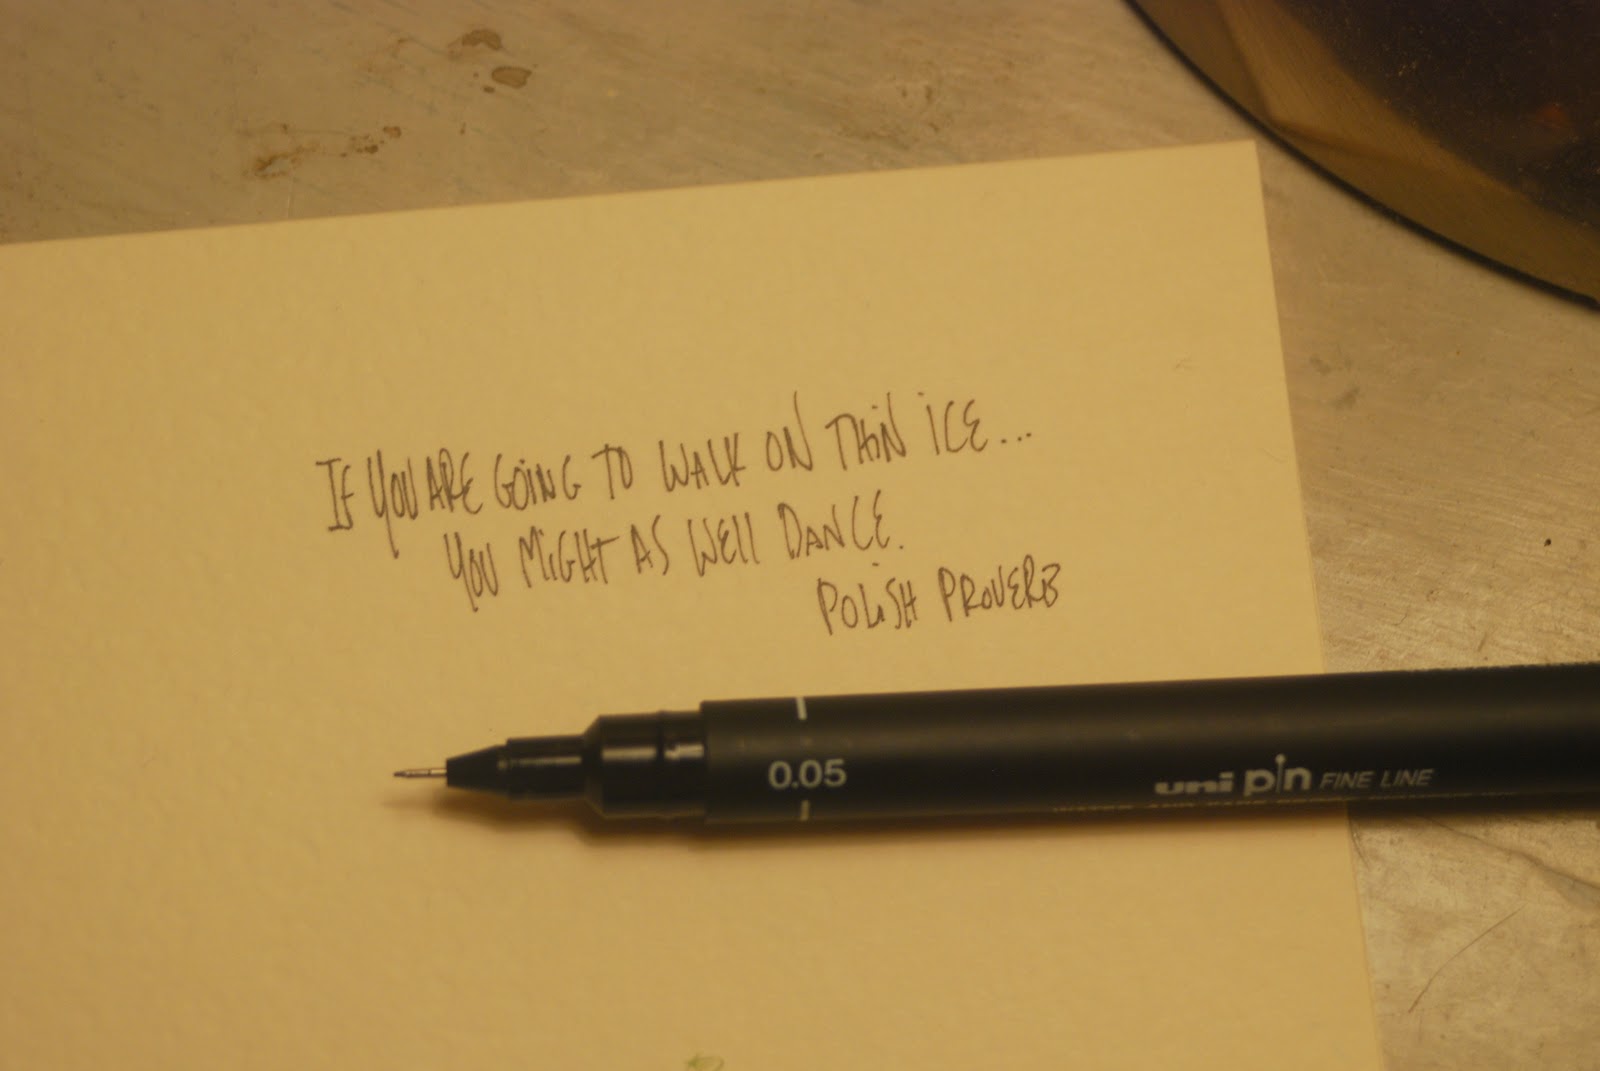 IF YOU ARE GOING TO WALK ON THIN ICE...
YOU MIGHT AS WELL DANCE.
POLISH PROVERB
0.05
uni pin FINE LINE